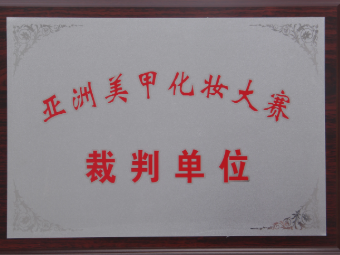 亚洲美甲化妆大赛
裁判单位